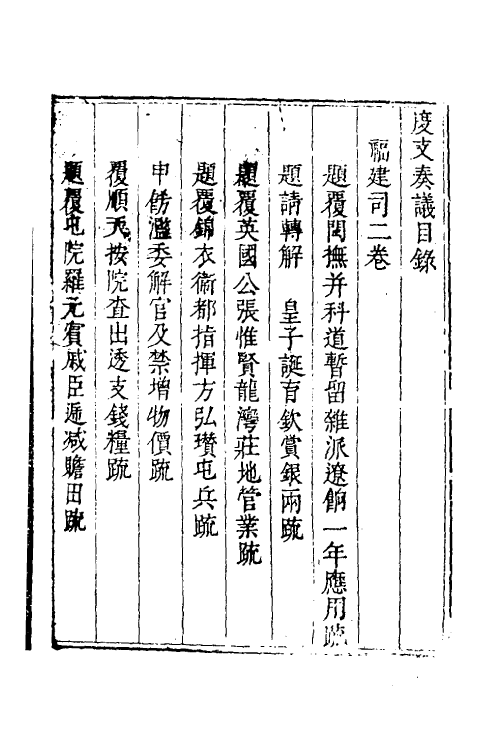 度支奏議目錄
福建司二卷
題覆閩撫并科道暫留雜派遼餉一年應用疏
題請轉解 皇子誕育欽賞銀兩疏
題覆英國公張惟賢龍灣莊地管業疏
題覆錦衣衛都指揮方弘瓚屯兵疏
申飭濫委解官及禁增物價疏
覆順天按院查出透支錢糧疏
題覆屯院羅元賓戚臣遞减贍田疏